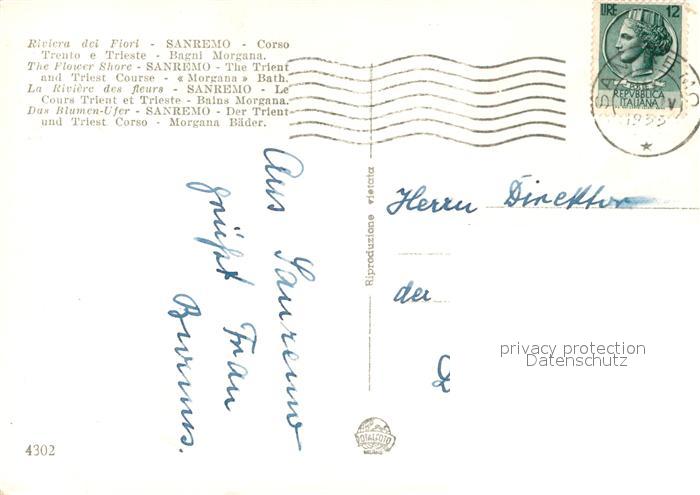 Riviera dei Fiori - SANREMO - Corso
Trento e Trieste - Bagni Morgana.
The Flower Shore - SANREMO - The Trient
and Triest Course - « Morgana » Bath.
La Rivière des fleurs - SANREMO - Le
Cours Trient et Trieste - Bains Morgana.
Das Blumen-Ufer - SANREMO - Der Trient
und Triest Corso - Morgana Bäder.
LIRE 12
REPVBBLICA
ITALIANA
Aus Sanremo
grüßt Frau
Riproduzione vietata
Herrn Direktor
der
privacy protection
Datenschutz
TOTALFOTO
MILANO
4302